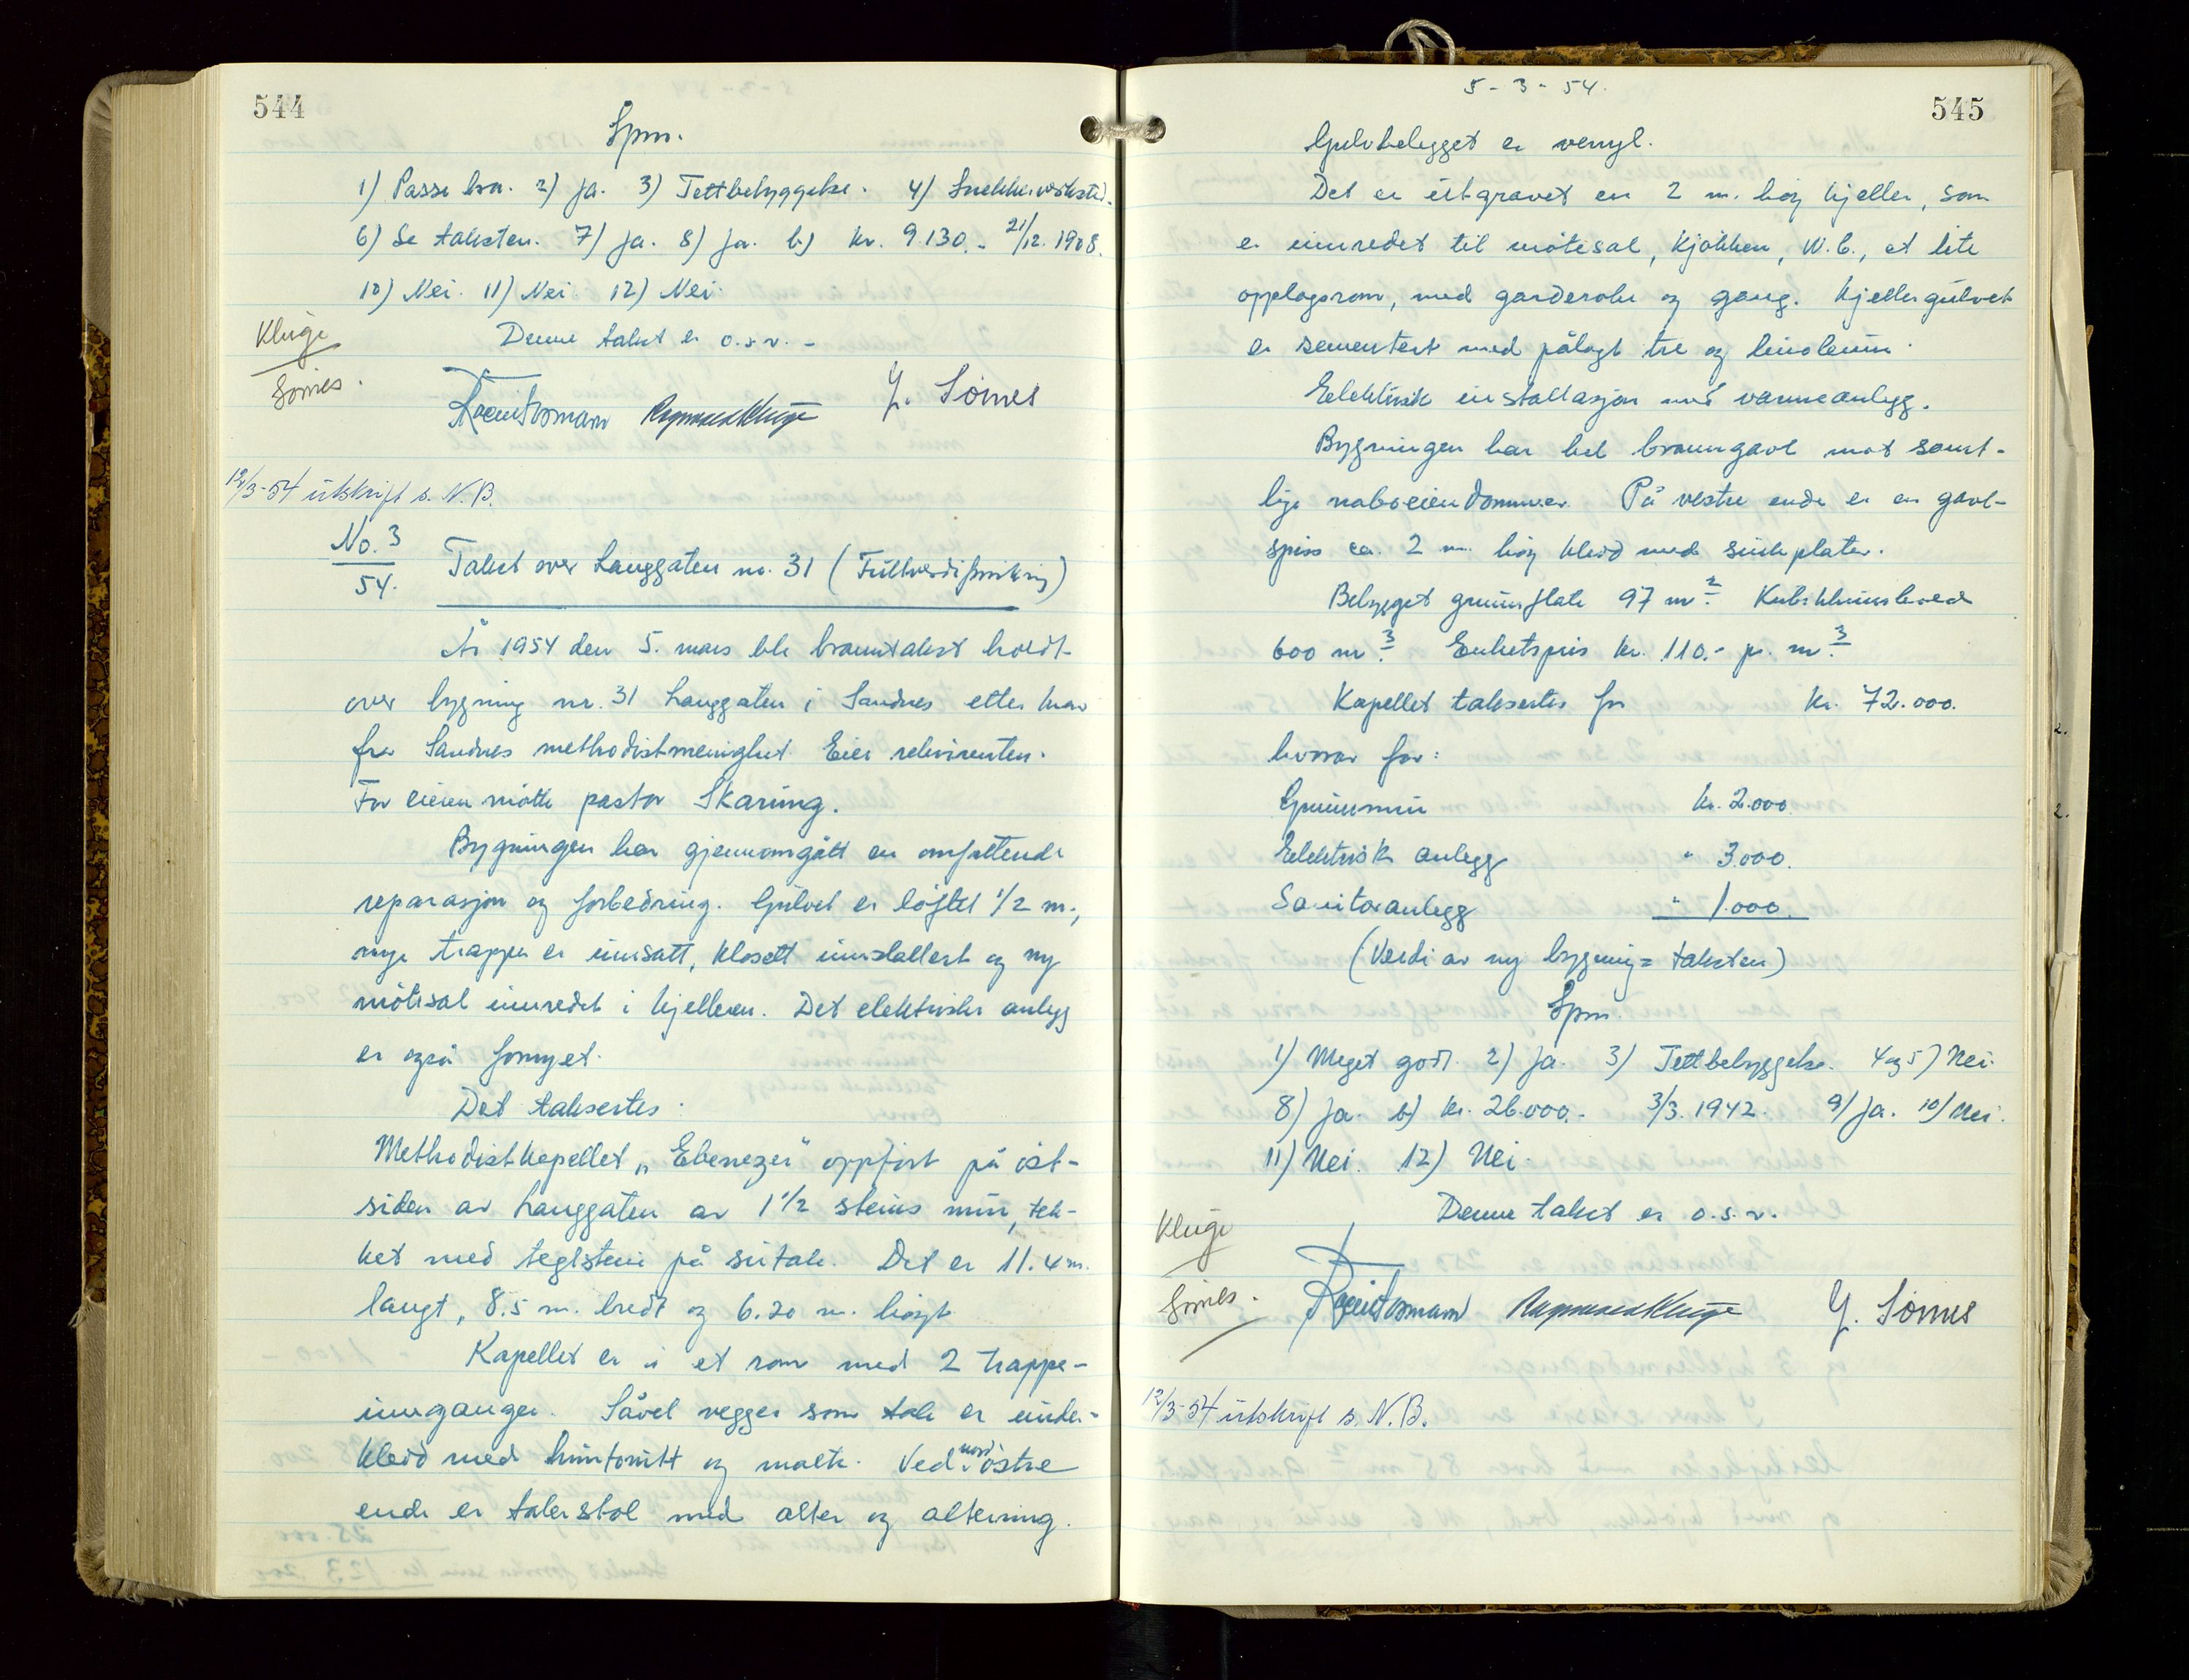 544
Spm.
1) Passe bra. 2) Ja. 3) Tettbebyggelse. 4) Snekkerverksted.
6) Se taksten. 7) Ja. 8) Ja. b) kr. 9.130.- 21/12. 1908.
10) Nei. 11) Nei 12) Nei.
Kluge
Denne takst er o.s.v. -
Sømes.
Y. Sømes
12/3-54 utskrift s. N.B.
No. 3
54.
Takst over Langgaten no. 31 (Fullverdiforsikring)
År 1954 den 5. mars ble branntakst holdt
over bygning nr. 31 Langgaten i Sandnes etter krav
fra Sandnes methodistmenighet. Eier rekvirenten.
For eieren møtte pastor Skarung.
Bygningen har gjennomgått en omfattende
reparasjon og forbedring. Gulvet er løftet 1/2 m.,
nye trapper er innsatt, klosett innstallert og ny
møtesal innredet i kjelleren. Det elektriske anlegg
er også fornyet.
Det taksertes:
Methodistkapellet „Ebenezer" oppført på øst-
siden av Langgaten av 1 1/2 steins mur, tek-
ket med teglstein på sutak. Det er 11.4 m.
langt, 8.5 m. bredt og 6.20 m. høyt
Kapellet er i et rom med 2 trappe-
innganger. Såvel vegger som tak er under-
kledd med huntonitt og malte. Ved nordøstre
ende er talerstol med alter og altering.
5-3-54.
545
Gulvbelegget er venyl.
Det er utgravet en 2 m. høy kjeller, som
er innredet til møtesal, kjøkken, W.C., et lite
opplagsrom, med garderobe og gang. Kjellergulvet
er sementert med pålagt tre og linoleum.
Eelektrisk installasjon med varmeanlegg.
Bygningen har hel branngavl mot samt-
lige naboeiendommer. På vestre ende er en gavl-
spiss ca. 2 m. høy kledd med sinkplater.
Bebygget grunnflate 97 m². Kubikkinnhold
600 m³. Enhetspris kr. 110.- pr. m³.
Kapellet taksertes for kr. 72.000.
hvorav for:
Grunnmur kr. 2.000
Eelektrisk anlegg " 3.000.
Sanitæranlegg " 1.000.
(Verdi av ny bygning = taksten)
Spm.
1) Meget god. 2) Ja. 3) Tettbebyggelse. 4 og 5) Nei.
8) Ja. b) kr. 26.000.- 3/3. 1942. 9) Ja. 10) Nei.
11) Nei. 12) Nei.
Denne takst er o.s.v.
Kluge
Sømes.
Y. Sømes
12/3-54 utskrift s. N.B.